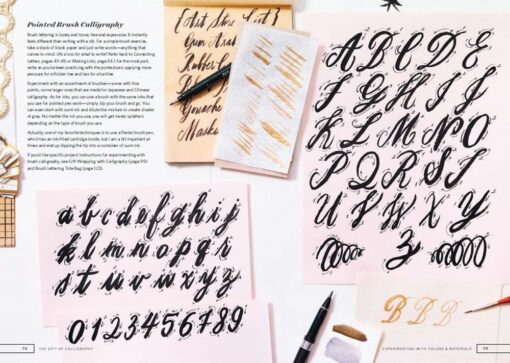 Pointed Brush Calligraphy
Brush lettering is lovely and loose, free and expressive. It instantly
feels different than writing with a nib. For a simple brush exercise,
take a stack of blank paper and just write words—anything that
comes to mind. (At a loss for what to write? Refer back to Connecting
Letters, pages 47–49, or Making Lists, page 54.) For the most part,
write as you've been practicing with the pointed pen, applying more
pressure for a thicker line and less for a hairline.
Experiment with an assortment of brushes—some with fine
points, some larger ones that are made for Japanese and Chinese
calligraphy. As for inks, you can use a brush with the same inks that
you use for pointed pen work—simply dip your brush and go. You
can even start with sumi ink and dilute the mixture to create shades
of gray. No matter the ink you use, you will get lovely splatters
depending on the type of brush you use.
Actually, one of my favorite techniques is to use a Pentel brush pen,
which has an ink-filled cartridge inside, but I am a bit impatient at
times and end up dipping the tip into a container of sumi ink.
If you'd like specific project instructions for experimenting with
brush calligraphy, see Gift Wrapping with Calligraphy (page 99)
and Brush Lettering Tote Bag (page 123).
{Art Store List}
Gum
Rubber
Gouache
a b c d e f g h i j
k l m n o p q r
s t u v w x y z
0 1 2 3 4 5 6 7 8 9
A B C D E
F G H I J
K L M N O
P Q R S T
U V W X Y
Z
B B B
74 THE GIFT OF CALLIGRAPHY
EXPERIMENTING WITH COLORS & MATERIALS 75